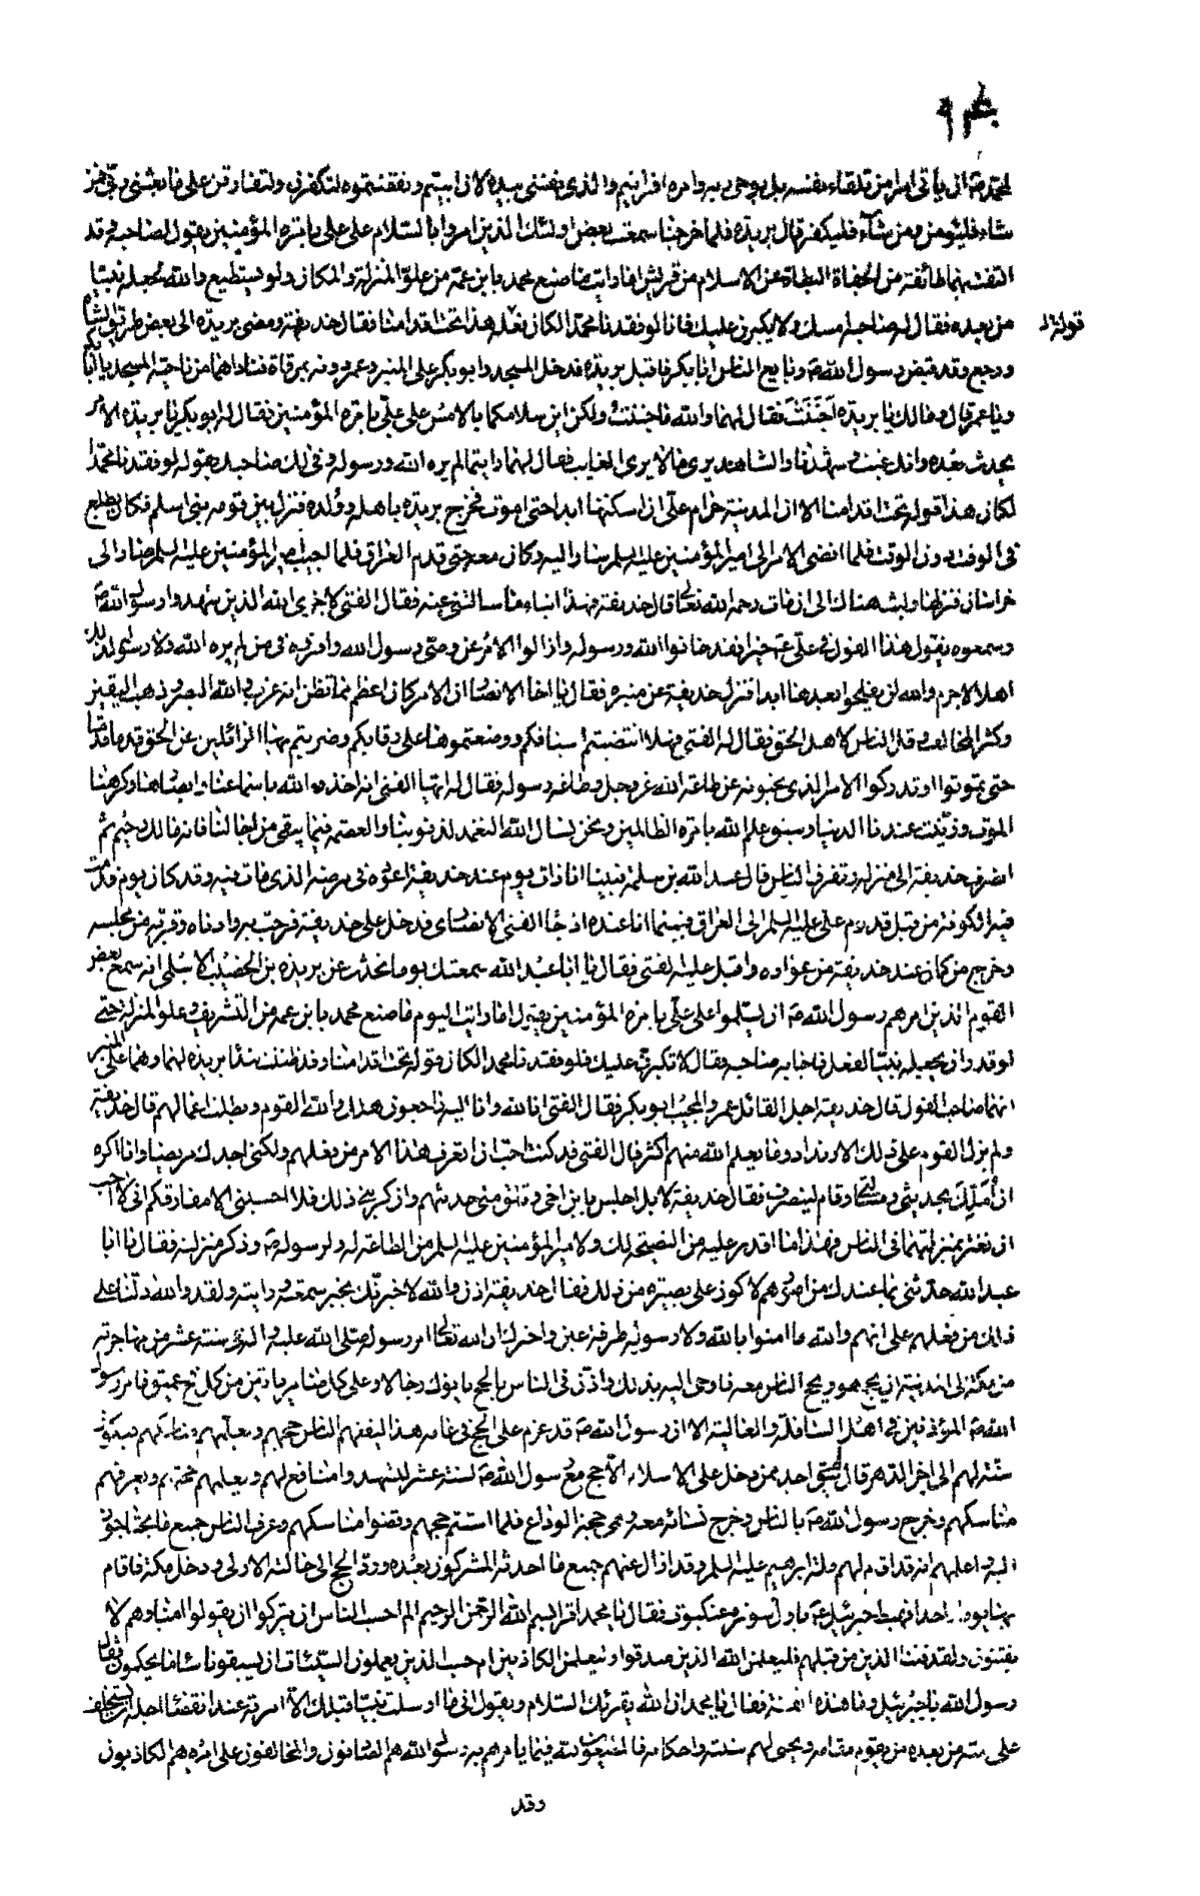 لمحمد ص ان ياتى امرا من تلقاء نفسه بل بوحى ربه وامره افرايتم والذى نفسى بيده لان ابيتم ونقضتموه لتكفرن ولتفارقن على ما بعثنى ربى فمن
شاء فليؤمن ومن شآء فليكفر قال بريدة فلما خرجنا سمعت بعض اولئك الذين امروا بالسلام على على بامرة المؤمنين يقول لصاحبه وقد
التفت بهما طائفة من الجفاة البطاة عن الاسلام من قريش اما رايت ما صنع محمد بابن عمه من علو المنزلة والمكان ولو يستطيع والله لجعله نبيا
من بعده فقال له صاحبه امسك ولا يكبرن عليك فانا لو فقدنا محمدا لكان فعله هذا تحت اقدامنا فقال حذيفة ومضى بريدة الى بعض طرق الشام
ورجع وقد قبض رسول الله ص وبايع الناس ابا بكر فاقبل بريدة فدخل المسجد وابو بكر على المنبر وعمر دونه بمرقاة فناداهما من ناحية المسجد يا ابا بكر
ويا عمر قال ومالك يا بريدة اجننت فقال لهما والله ما جننت ولكن اين سلامكما بالامس على علي بامرة المؤمنين فقال له ابو بكر يا بريدة الامر
يحدث بعده الامر وانك غبت وشهدنا والشاهد يرى ما لا يرى الغايب فقال لهما رايتما لم يره الله ورسوله وفى لك صاحبك بقوله لو فقدنا محمدا
لكان هذا قوله تحت اقدامنا الا ان المدينة حرام على ان اسكنها ابدا حتى اموت فخرج بريدة باهله وولده فنزل بين قومه بنى اسلم فكان يطلع
فى الوقت دون الوقت فلما افضى الامر الى امير المؤمنين عليه السلم سار اليه وكان معه حتى قدم العراق فلما اصيب امير المؤمنين عليه السلم صار الى
خراسان فنزلها ولبث هنالك الى ان مات رحمه الله تعالى قال حذيفة فهذا انباء ما سالتنى عنه فقال الفتى لا جزى الله الذين شهدوا رسول الله ص
وسمعوه يقول هذا القول فى على ع خيرا فقد خانوا الله ورسوله وازالوا الامر عن وصى رسول الله واقروه فى من لم يره الله ولا رسوله لذلك
اهلا لا جرم والله لن يفلحوا بعدها ابدا فنزل حذيفة عن منبره فقال يا اخا الانصار ان الامر كان اعظم مما تظن انه عزب والله البصر وذهب اليقين
وكثر المخالف وقل الناصر لاهل الحق فقال له الفتى فهلا انتضيتم اسيافكم ووضعتموها على رقابكم وضربتم بها الزائلين عن الحق قدما قدما
حتى تموتوا او تدركوا الامر الذى تحبونه من طاعة الله عز وجل وطاعة رسوله فقال له ايها الفتى انه اخذ والله باسماعنا وابصارنا وكرهنا
الموت وزينت عندنا الدنيا وسبق علم الله بامرة الظالمين ونحن نسال الله التغمد لذنوبنا والعصمة فيما بقى من اجالنا فانه مالك رحيم ثم
انصرف حذيفة الى منزله وتفرق الناس قال عبد الله بن سلمة فبينا انا ذات يوم عند حذيفة اعوده فى مرضه الذى مات فيه وقد كان يوم قدمت
فيه الكوفة من قبل قدوم على عليه السلم الى العراق فبينما انا عنده اذ جاء الفتى الانصارى فدخل على حذيفة فرحب به وادناه وقربه من مجلسه
وخرج من كان عند حذيفة من عواده واقبل عليه الفتى فقال يا ابا عبد الله سمعتك يوما تحدث عن بريدة بن الحصيب الاسلمى انه سمع بعض
القوم الذين امرهم رسول الله ص ان يسلموا على علي بامرة المؤمنين يقول لصاحبه اما رايت اليوم ما صنع محمد بابن عمه من التشريف وعلو المنزلة حتى
لو قدر ان يجعله نبيا لفعل فاجابه صاحبه فقال لا يكبرن عليك فلو فقدنا محمدا لكان قوله تحت اقدامنا وقد ظننت نداء بريدة لهما وهما على المنبر
انهما صاحبا القول قال حذيفة اجل القائل عمر والمجيب ابو بكر فقال الفتى انا لله وانا اليه راجعون هلك والله القوم وبطلت اعمالهم قال حذيفة
ولم يزل القوم على ذلك الارتداد وما يعلم الله منهم اكثر قال الفتى قد كنت احب ان اتعرف هذا الامر من فعلهم ولكنى اجدك مريضا وانا اكره
ان املك بحديثى ومسئلتى وقام لينصرف فقال حذيفة لا بل اجلس يابن اخى وتلق منى حديثهم وان كربنى ذلك فلا احسبنى الا مفارقكم انى لا احب
ان تغتر بمنزلتهما فى الناس فهذا ما اقدر عليه من النصيحة لك ولامير المؤمنين عليه السلم من الطاعة له ولرسوله ص وذكر منزلته فقال يا ابا
عبد الله حدثنى بما عندك من امورهم لاكون على بصيرة من ذلك فقال حذيفة اذن والله لاخبرنك بخبر سمعته ورايته ولقد والله دلنا على
ذلك من فعلهم على انهم والله ما امنوا بالله ولا رسوله طرفة عين واخبرك ان الله تعالى امر رسوله صلى الله عليه واله فى سنة عشر من مهاجرته
من مكة الى المدينة ان يحج هو ويحج الناس معه فاوحى اليه بذلك واذن فى الناس بالحج ياتوك رجالا وعلى كل ضامر ياتين من كل فج عميق فامر رسول
الله ص المؤذنين فى اهل السافلة والعالية الا ان رسول الله ص قد عزم على الحج فى عامه هذا ليفهم الناس حجهم ويعلمهم مناسكهم فيكون
سنة لهم الى اخر الدهر قال فلم يبق احد ممن دخل على الاسلام الا حج مع رسول الله ص لسنة عشر ليشهدوا منافع لهم ويعلمهم حجهم ويعرفهم
مناسكهم وخرج رسول الله ص بالناس وخرج نسائه معه وهى حجة الوداع فلما استتم حجهم وقضوا مناسكهم وعرف الناس جميع ما يحتاجون
اليه واعلمهم انه قد اقام لهم ملة ابرهيم عليه السلم وقد ازال عنهم جميع ما احدثه المشركون بعده ورد الحج الى حالته الاولى ودخل مكة فاقام
بها يوما واحدا فهبط جبرئيل ع باول سورة عنكبوت فقال يا محمد اقرا بسم الله الرحمن الرحيم الم احسب الناس ان يتركوا ان يقولوا امنا وهم لا
يفتنون ولقد فتنا الذين من قبلهم فليعلمن الله الذين صدقوا وليعلمن الكاذبين ام حسب الذين يعملون السيئات ان يسبقونا ساء ما يحكمون فقال
رسول الله يا جبرئيل وما هذه الفتنة فقال يا محمد ان الله يقرئك السلام ويقول انى ما ارسلت نبيا قبلك الا امرته عند انقضاء اجله ان يستخلف
على امته من بعده من يقوم مقامه ويحيى لهم سنته واحكامه فالمطيعون لله فيما يامرهم به رسول الله هم الصادقون والمخالفون على امره هم الكاذبون
وقد